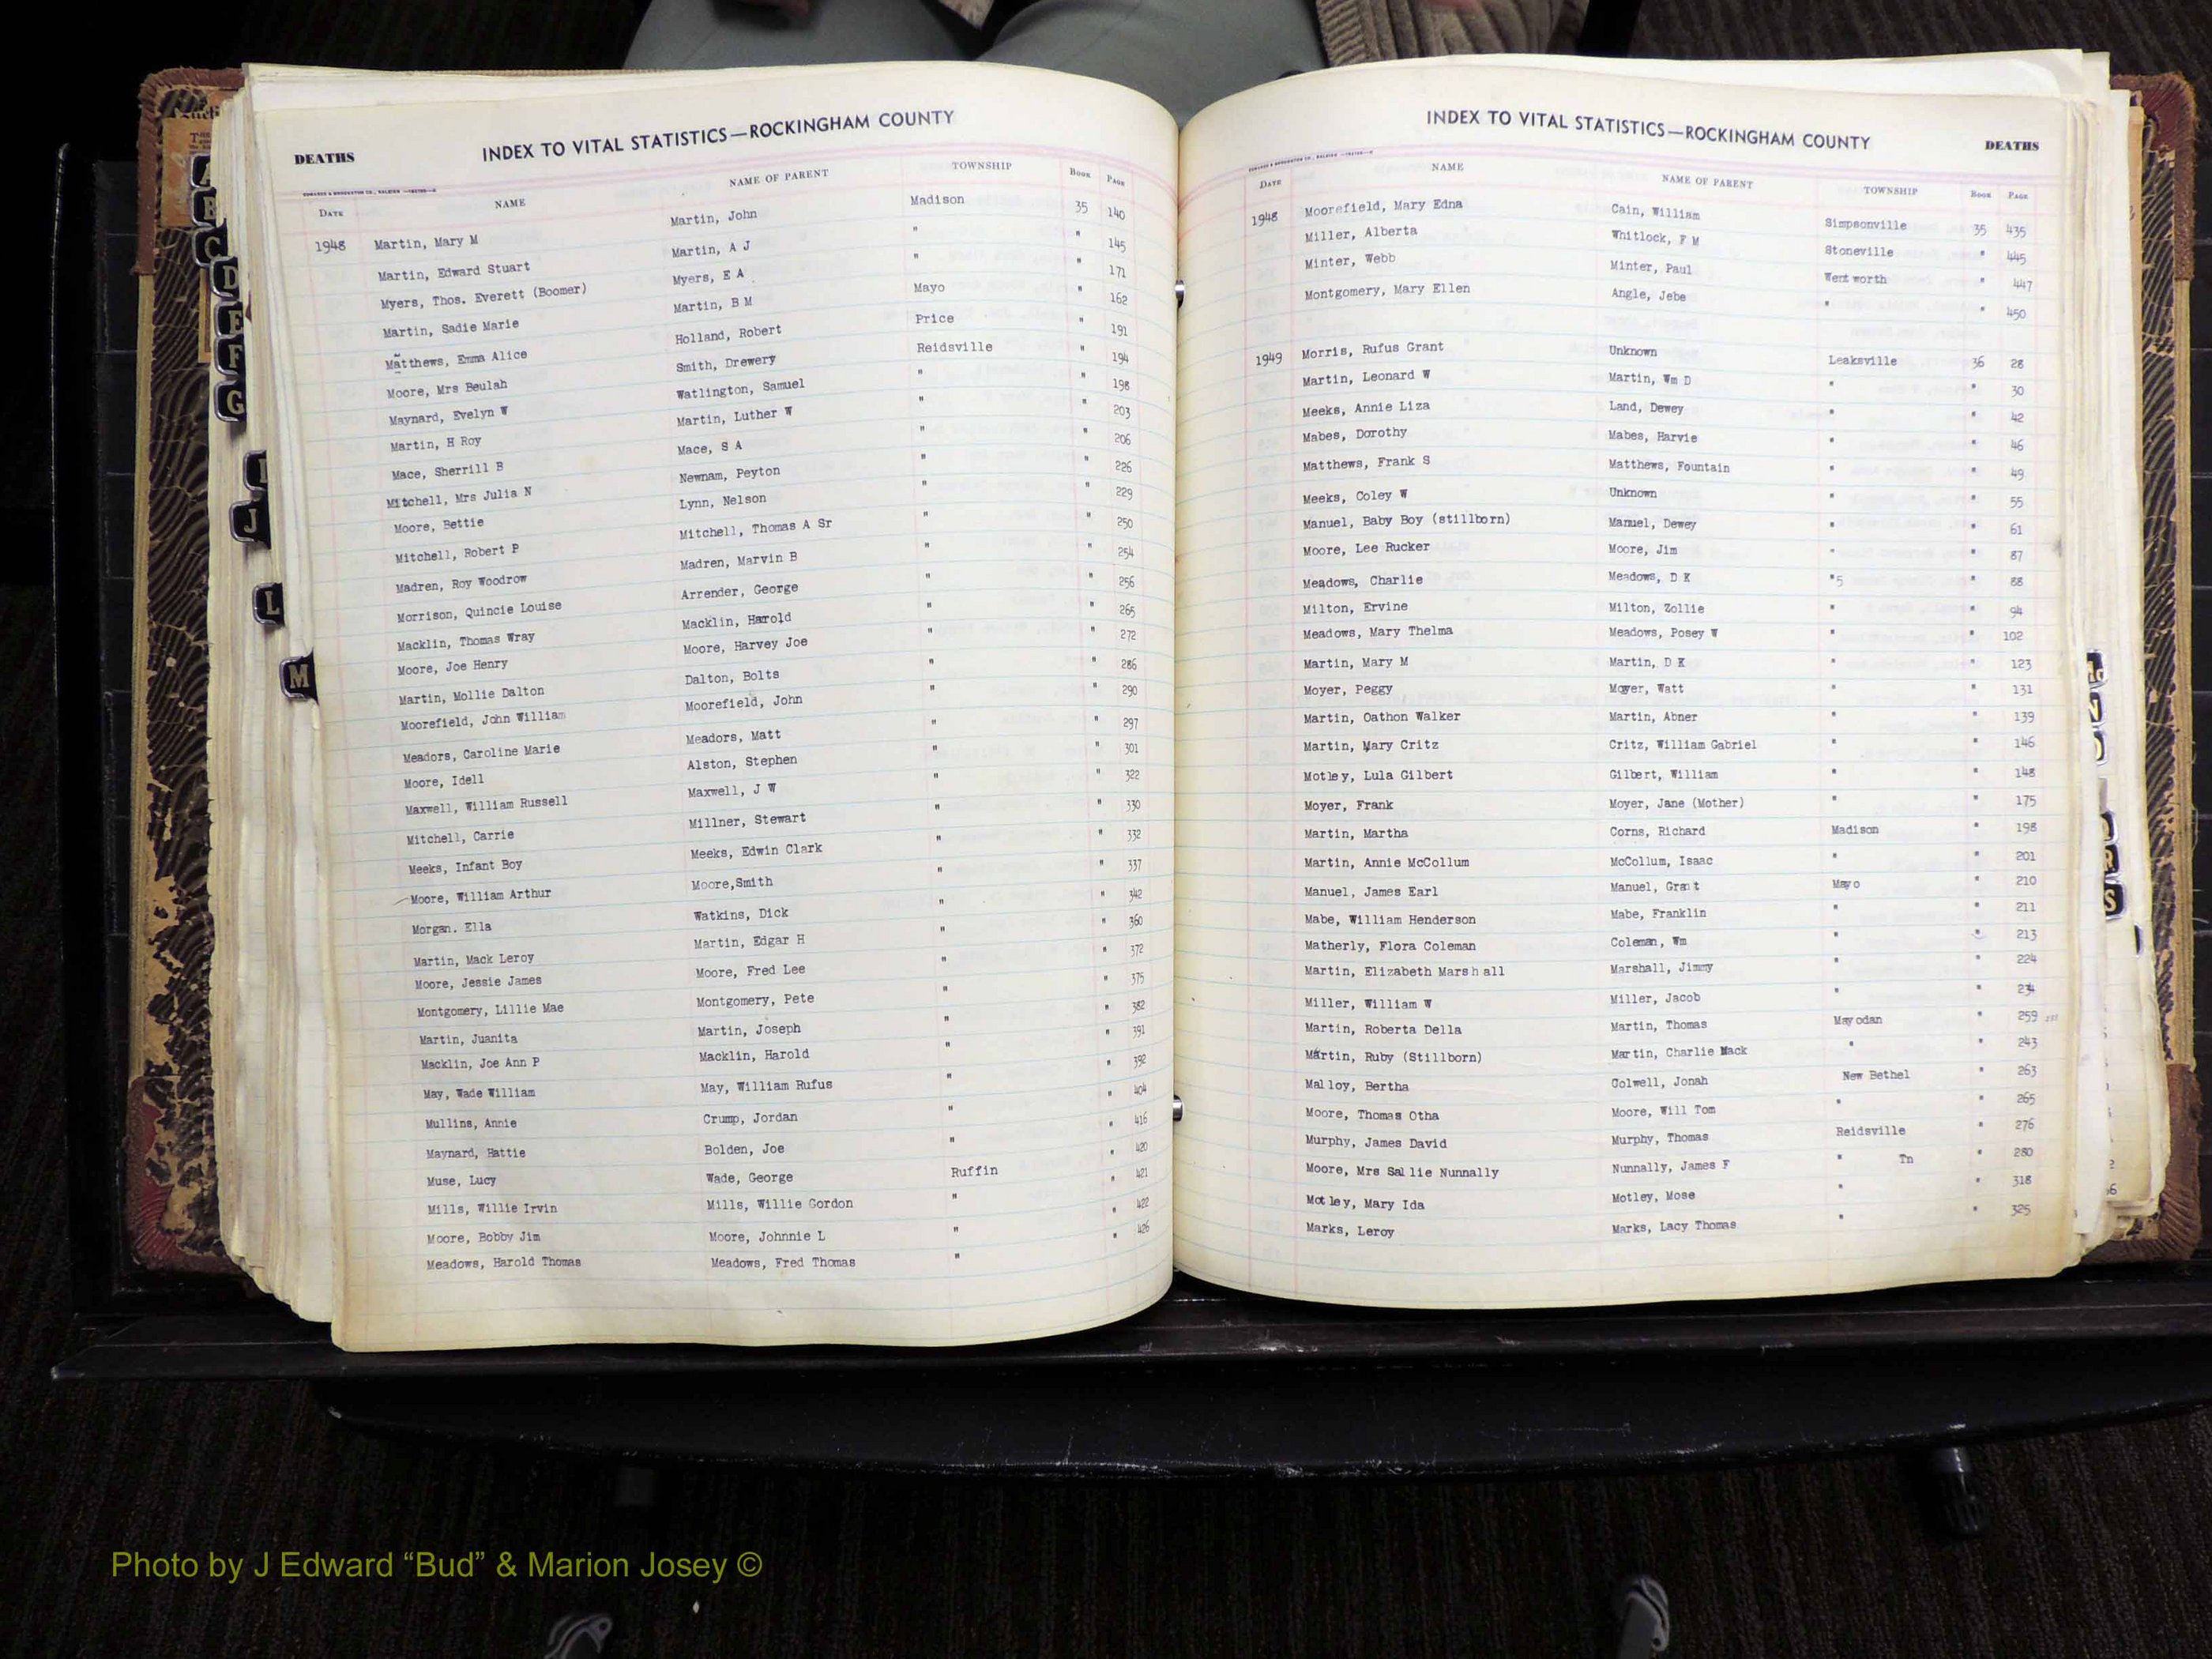 DEATHS INDEX TO VITAL STATISTICS—ROCKINGHAM COUNTY
DATE NAME NAME OF PARENT TOWNSHIP BOOK PAGE
1948 Martin, Mary M Martin, John Madison 35 140
Martin, Edward Stuart Martin, A J " " 145
Myers, Thos. Everett (Boomer) Myers, E A " " 171
Martin, Sadie Marie Martin, B M Mayo " 162
Matthews, Emma Alice Holland, Robert Price " 191
Moore, Mrs Beulah Smith, Drewery Reidsville " 194
Maynard, Evelyn W Watlington, Samuel " " 198
Martin, H Roy Martin, Luther W " " 203
Mace, Sherrill B Mace, S A " " 206
Mitchell, Mrs Julia N Newnam, Peyton " " 226
Moore, Bettie Lynn, Nelson " " 229
Mitchell, Robert P Mitchell, Thomas A Sr " " 250
Madren, Roy Woodrow Madren, Marvin B " " 254
Morrison, Quincie Louise Arrender, George " " 256
Macklin, Thomas Wray Macklin, Harold " " 265
Moore, Joe Henry Moore, Harvey Joe " " 272
Martin, Mollie Dalton Dalton, Bolts " " 286
Moorefield, John William Moorefield, John " " 290
Meadors, Caroline Marie Meadors, Matt " " 297
Moore, Idell Alston, Stephen " " 301
Maxwell, William Russell Maxwell, J W " " 322
Mitchell, Carrie Millner, Stewart " " 330
Meeks, Infant Boy Meeks, Edwin Clark " " 332
Moore, William Arthur Moore,Smith " " 337
Morgan. Ella Watkins, Dick " " 342
Martin, Mack Leroy Martin, Edgar H " " 360
Moore, Jessie James Moore, Fred Lee " " 372
Montgomery, Lillie Mae Montgomery, Pete " " 375
Martin, Juanita Martin, Joseph " " 382
Macklin, Joe Ann P Macklin, Harold " " 391
May, Wade William May, William Rufus " " 392
Mullins, Annie Crump, Jordan " " 404
Maynard, Hattie Bolden, Joe " " 416
Muse, Lucy Wade, George Ruffin " 420
Mills, Willie Irvin Mills, Willie Gordon " " 421
Moore, Bobby Jim Moore, Johnnie L " " 422
Meadows, Harold Thomas Meadows, Fred Thomas " " 426
INDEX TO VITAL STATISTICS—ROCKINGHAM COUNTY DEATHS
DATE NAME NAME OF PARENT TOWNSHIP BOOK PAGE
1948 Moorefield, Mary Edna Cain, William Simpsonville 35 435
Miller, Alberta Whitlock, F M Stoneville " 445
Minter, Webb Minter, Paul Wentworth " 447
Montgomery, Mary Ellen Angle, Jebe " " 450
1949 Morris, Rufus Grant Unknown Leaksville 36 28
Martin, Leonard W Martin, Wm D " " 30
Meeks, Annie Liza Land, Dewey " " 42
Mabes, Dorothy Mabes, Harvie " " 46
Matthews, Frank S Matthews, Fountain " " 49
Meeks, Coley W Unknown " " 55
Manuel, Baby Boy (stillborn) Manuel, Dewey " " 61
Moore, Lee Rucker Moore, Jim " " 87
Meadows, Charlie Meadows, D K "5 " 88
Milton, Ervine Milton, Zollie " " 94
Meadows, Mary Thelma Meadows, Posey W " " 102
Martin, Mary M Martin, D K " " 123
Moyer, Peggy Moyer, Watt " " 131
Martin, Oathon Walker Martin, Abner " " 139
Martin, Mary Critz Critz, William Gabriel " " 146
Motley, Lula Gilbert Gilbert, William " " 148
Moyer, Frank Moyer, Jane (Mother) " " 175
Martin, Martha Corns, Richard Madison " 198
Martin, Annie McCollum McCollum, Isaac " " 201
Manuel, James Earl Manuel, Grant Mayo " 210
Mabe, William Henderson Mabe, Franklin " " 211
Matherly, Flora Coleman Coleman, Wm " " 213
Martin, Elizabeth Marshall Marshall, Jimmy " " 224
Miller, William W Miller, Jacob " " 234
Martin, Roberta Della Martin, Thomas Mayodan " 259
Martin, Ruby (Stillborn) Martin, Charlie Mack " " 243
Malloy, Bertha Colwell, Jonah New Bethel " 263
Moore, Thomas Otha Moore, Will Tom " " 265
Murphy, James David Murphy, Thomas Reidsville " 276
Moore, Mrs Sallie Nunnally Nunnally, James F " Tn " 280
Motley, Mary Ida Motley, Mose " " 318
Marks, Leroy Marks, Lacy Thomas " " 325
A
B
C
D
E
F
G
J
L
M
N
R
S
Photo by J Edward “Bud” & Marion Josey ©